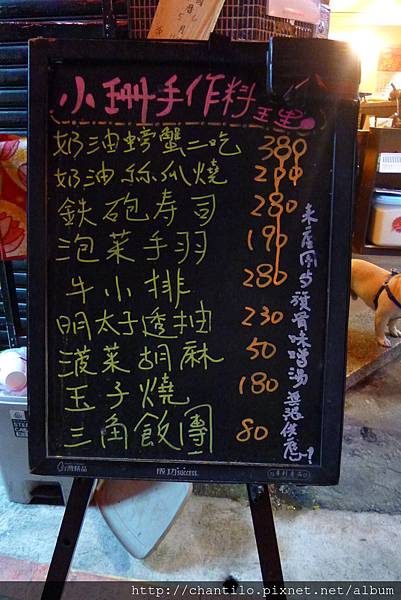 小珊手作料理
奶油螃蟹二吃 380
奶油絲瓜燒 200
鉄砲寿司 280
泡菜手羽 190
牛小排 280
明太子透抽 230
菠菜胡麻 50
玉子燒 180
三角飯團 80
来店附大骨味噌湯無限供應!
http://chantilo.pixnet.net/album